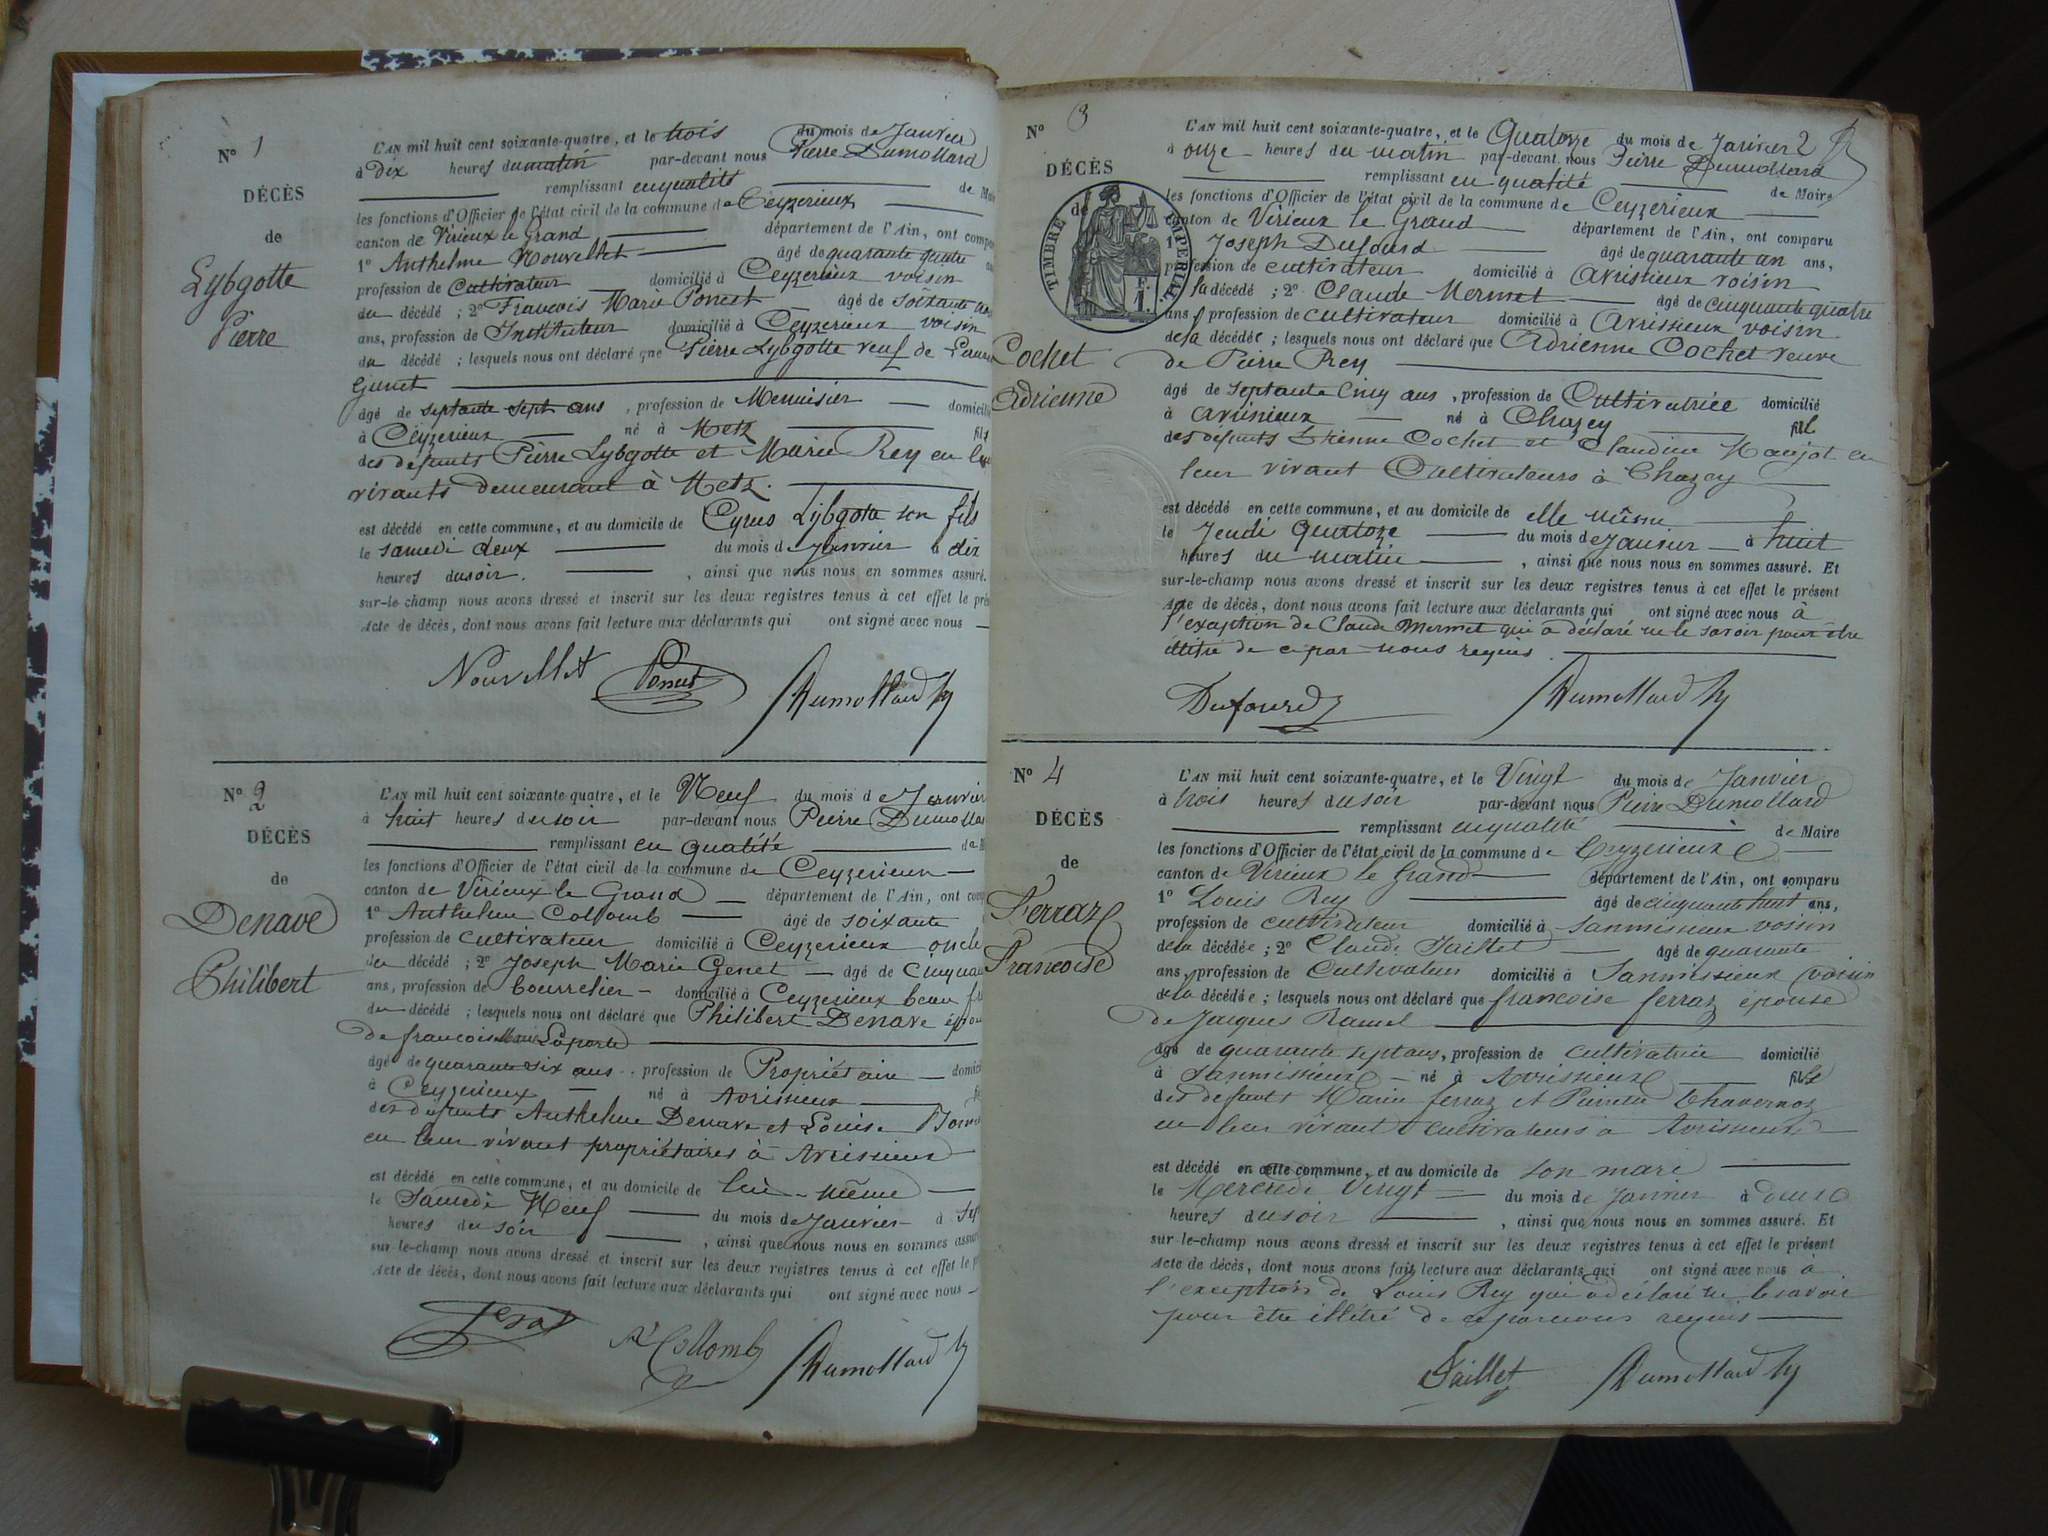 N° 1
DÉCÈS
de
Lybgotte
Pierre
L'AN mil huit cent soixante-quatre, et le trois du mois de Janvier
à Dix heures du matin par-devant nous Pierre Dumollard
remplissant en qualité de
les fonctions d'Officier de l'état civil de la commune de Ceyzerieux
canton de Virieux le Grand département de l'Ain, ont
1° Anthelme Nouvellet âgé de quarante quatre
profession de Cultivateur domicilié à Ceyzerieux voisin
du décédé ; 2° François Marie Poncet âgé de soixante
ans, profession de Instituteur domicilié à Ceyzerieux voisin
du décédé ; lesquels nous ont déclaré que Pierre Lybgotte veuf de
Genet
âgé de septante sept ans, profession de Menuisier
à Ceyzerieux né à Metz fils
des défunts Pierre Lybgotte et Marie Rey en
vivants demeurant à Metz.
est décédé en cette commune, et au domicile de Cyrus Lybgotte son fils
le samedi deux du mois de Janvier à dix
heures du soir. , ainsi que nous nous en sommes assuré.
sur-le champ nous avons dressé et inscrit sur les deux registres tenus à cet effet le
Acte de décès, dont nous avons fait lecture aux déclarants qui ont signé avec nous
Nouvellet Poncet Dumollard
N° 2
DÉCÈS
de
Denave
Philibert
L'AN mil huit cent soixante-quatre, et le Neuf du mois de Janvier
à huit heures du soir par-devant nous Pierre
remplissant en qualité de
les fonctions d'Officier de l'état civil de la commune de Ceyzerieux
canton de Virieux le Grand département de l'Ain, ont
1° Anthelme Collomb âgé de soixante
profession de cultivateur domicilié à Ceyzerieux oncle
du décédé ; 2° Joseph Marie Genet âgé de
ans, profession de bourrelier domicilié à Ceyzerieux beau
du décédé ; lesquels nous ont déclaré que Philibert Denave
de françoise Marie Laporte
âgé de quarante six ans, profession de Propriétaire
à Ceyzerieux né à Avrissieux
des défunts Anthelme Denave et Louise
en leur vivant propriétaires à Avrissieux
est décédé en cette commune, et au domicile de lui-même
le Samedi Neuf du mois de Janvier à
heures du soir , ainsi que nous nous en sommes
sur-le-champ nous avons dressé et inscrit sur les deux registres tenus à cet effet le
Acte de décès, dont nous avons fait lecture aux déclarants qui ont signé avec nous
Collomb Dumollard
N° 3
DÉCÈS
de
TIMBRE IMPERIAL
Cochet
Adrienne
L'AN mil huit cent soixante-quatre, et le Quatorze du mois de Janvier 2
à onze heures du matin par-devant nous Pierre Dumollard
remplissant en qualité de Maire
les fonctions d'Officier de l'état civil de la commune de Ceyzerieux
canton de Virieux le Grand département de l'Ain, ont comparu
1° Joseph Dufourd âgé de quarante un ans,
profession de cultivateur domicilié à Avrissieux voisin
la décédé ; 2° Claude Mermet âgé de cinquante quatre
ans, profession de cultivateur domicilié à Avrissieux voisin
de la décédée ; lesquels nous ont déclaré que Adrienne Cochet veuve
de Pierre Rey
âgé de septante cinq ans, profession de Cultivatrice domicilié
à Avrissieux né à Chazey fille
des défunts Etienne Cochet et Claudine Maujot en
leur vivant Cultivateurs à Chazey
est décédé en cette commune, et au domicile de elle même
le Jeudi Quatorze du mois de Janvier à huit
heures du matin , ainsi que nous nous en sommes assuré. Et
sur-le-champ nous avons dressé et inscrit sur les deux registres tenus à cet effet le présent
Acte de décès, dont nous avons fait lecture aux déclarants qui ont signé avec nous à
l'exception de Claude Mermet qui a déclaré ne le savoir pour être
illitré de ce par nous requis.
Dufourd Dumollard
N° 4
DÉCÈS
de
Ferraz
Françoise
L'AN mil huit cent soixante-quatre, et le Vingt du mois de Janvier
à trois heures du soir par-devant nous Pierre Dumollard
remplissant en qualité de Maire
les fonctions d'Officier de l'état civil de la commune de Ceyzerieux
canton de Virieux le Grand département de l'Ain, ont comparu
1° Louis Rey âgé de cinquante huit ans,
profession de cultivateur domicilié à Sanmissieux voisin
de la décédée ; 2° Claude Jaillet âgé de quarante
ans, profession de Cultivateur domicilié à Sanmissieux voisin
de la décédée ; lesquels nous ont déclaré que françoise ferraz épouse
de Jacques Ramel
âgé de quarante sept ans, profession de cultivatrice domicilié
à Sanmissieux né à Avrissieux fille
des défunts Marin ferraz et Pierrette Chavernoz
en leur vivant cultivateurs à Avrissieux
est décédé en cette commune, et au domicile de son mari
le Mercredi Vingt du mois de Janvier à
heures du soir , ainsi que nous nous en sommes assuré. Et
sur-le-champ nous avons dressé et inscrit sur les deux registres tenus à cet effet le présent
Acte de décès, dont nous avons fait lecture aux déclarants qui ont signé avec nous à
l'exception de Louis Rey qui a déclaré ne le savoir
pour être illétré de ce par nous requis
Jaillet Dumollard